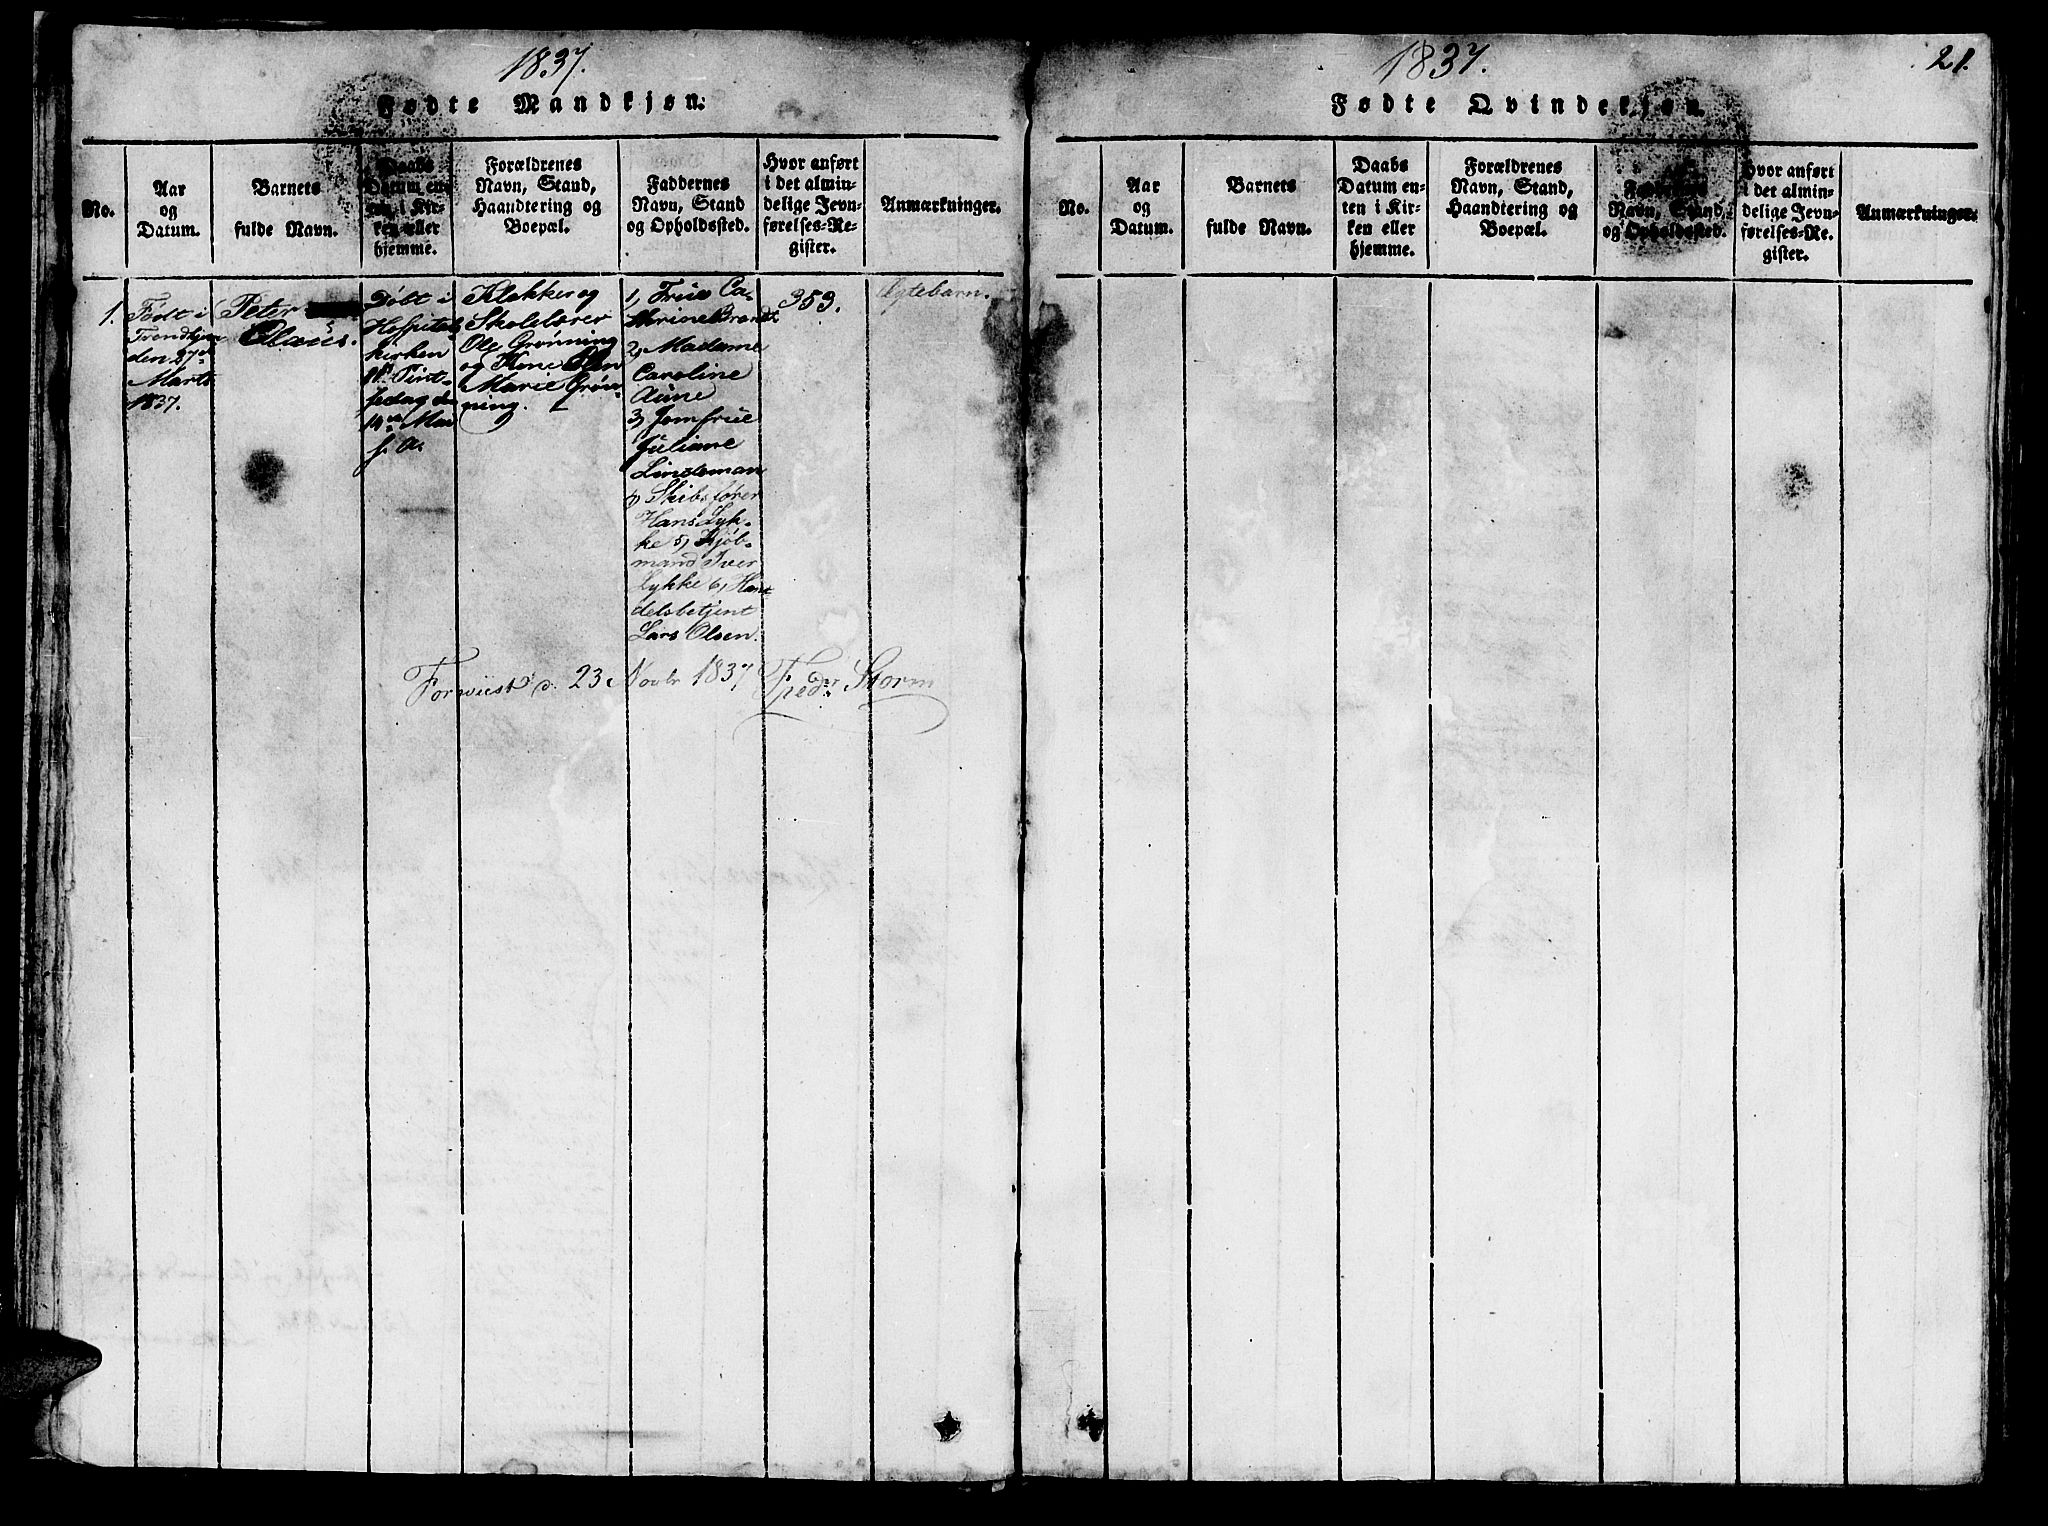 1837.
Fødte Mandkjøn.
No.
Aar
og
Datum.
Barnets
fulde Navn.
Daabs
Datum en-
ten i Kir-
ken eller
hjemme.
Forældrenes
Navn, Stand,
Haandtering og
Boepæl.
Faddernes
Navn, Stand
og Opholdssted.
Hvor anført
i det almin-
delige Jevn-
førelses-Re-
gister.
Anmærkninger.
1.
Født i
Trondhjem
den 27de
Marts
1837.
Peter
Olaus.
Døbt i
Hospitals
kirken
1ste Pint-
sedag den
14de Mai
s. A.
Klokker og
Skolelærer
Ole Grønning
og Kone Elen
Marie Grøn-
ning.
1, Frue Ca-
thrine Brandt
2, Madame
Caroline
Aune
3, Jomfrue
Juliane
Lindeman
4, Skibsfører
Hans Lyk-
ke 5, Kjøb-
mand Iver
Lykke 6, Han-
delsbetjent
Lars Olsen.
353.
Ægtebarn.
Forviist d. 23. Novbr 1837 Fredr Storm
1837.
21.
Fødte Qvindekjøn.
No.
Aar
og
Datum.
Barnets
fulde Navn.
Daabs
Datum en-
ten i Kir-
ken eller
hjemme.
Forældrenes
Navn, Stand,
Haandtering og
Boepæl.
Faddernes
Navn, Stand,
og Opholdssted.
Hvor anført
i det almin-
delige Jevn-
førelses-Re-
gister.
Anmærkninger.